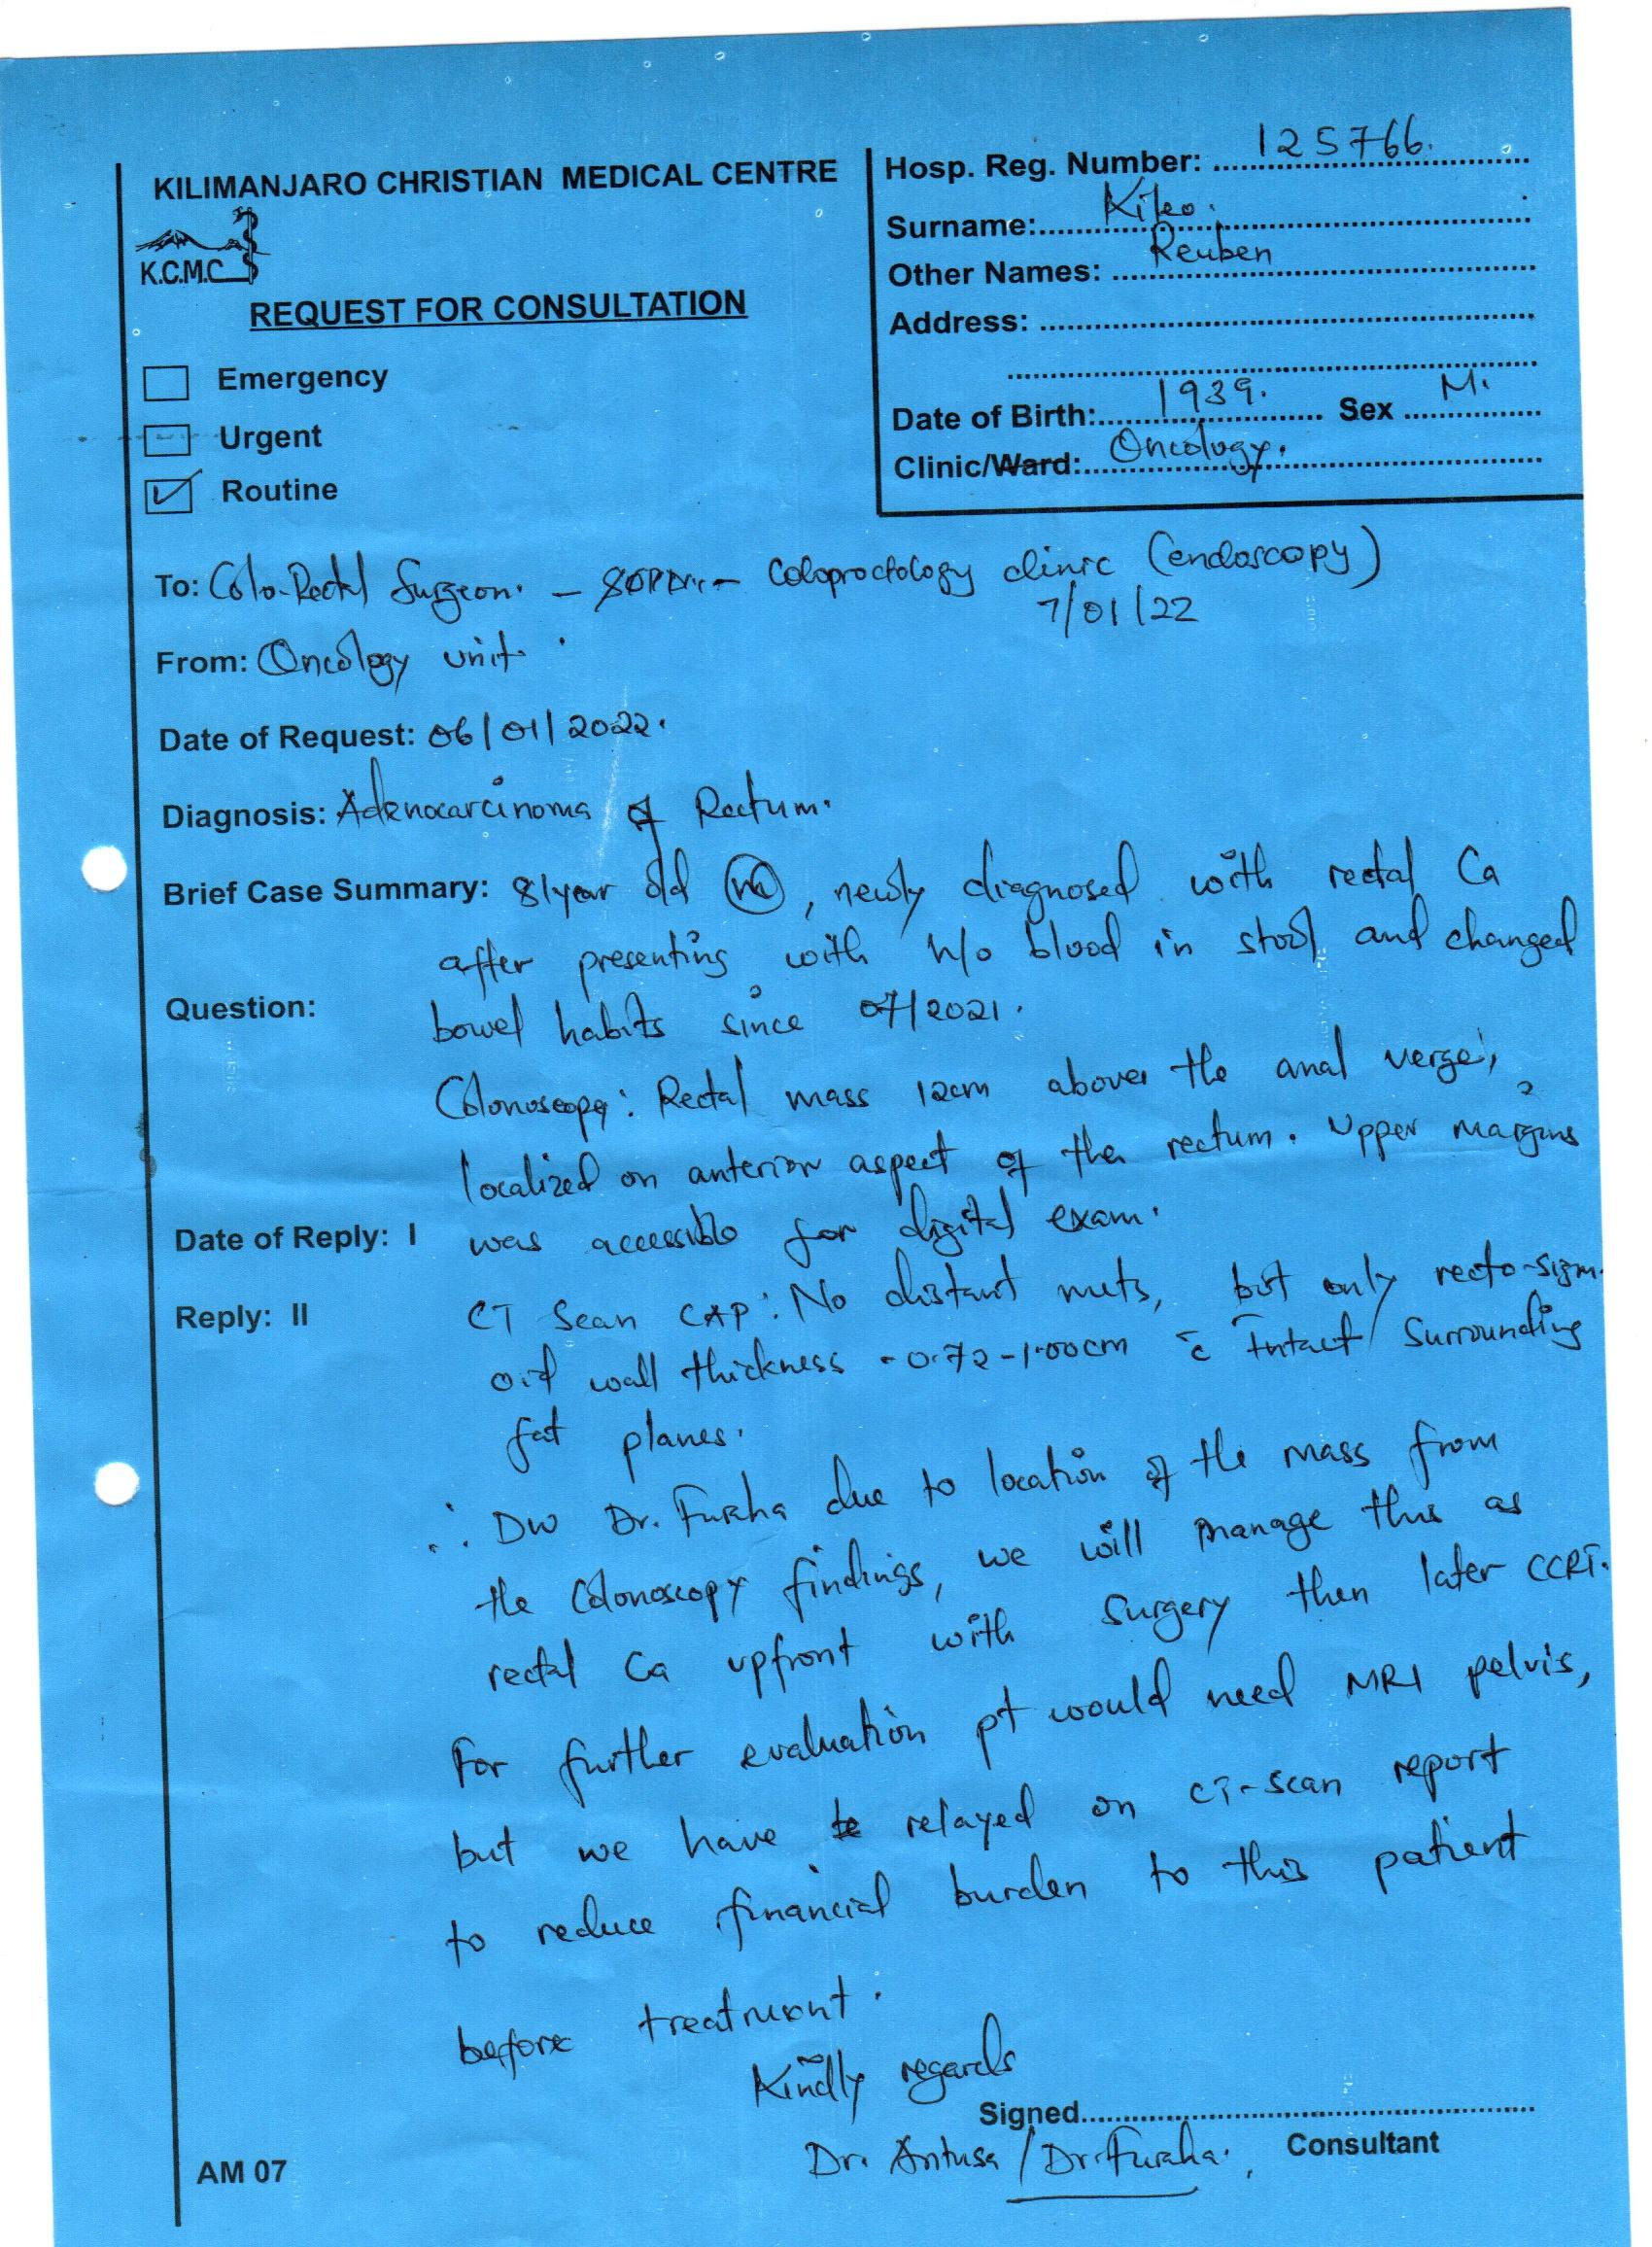 KILIMANJARO CHRISTIAN MEDICAL CENTRE
K.C.M.C
REQUEST FOR CONSULTATION
Emergency
Urgent
Routine
Hosp. Reg. Number: 125766.
Surname: Kileo.
Other Names: Reuben
Address:
Date of Birth: 1939. Sex M.
Clinic/Ward: Oncology.
To: Colo-Rectal Surgeon. – – Coloproctology clinic (endoscopy)
7/01/22
From: Oncology unit.
Date of Request: 06/01/2022.
Diagnosis: Adenocarcinoma of Rectum.
Brief Case Summary: 81year old M, newly diagnosed with rectal Ca
after presenting with h/o blood in stool and changed
Question:
bowel habits since 07/2021.
Colonoscopy: Rectal mass 12cm above the anal verge,
localized on anterior aspect of the rectum. Upper margins
Date of Reply: I was accessible for digital exam.
Reply: II
CT Scan CAP: No distant mets, but only recto-sigm-
oid wall thickness - 0.72-1.00cm c̄ intact surrounding
fat planes.
∴ DW Dr. Furaha due to location of the mass from
the Colonoscopy findings, we will manage this as
rectal Ca upfront with surgery then later CCRT.
For further evaluation pt would need MRI pelvis,
but we have relayed on CT-scan report
to reduce financial burden to this patient
before treatment.
Kindly regards
Signed
Dr. Antusa / Dr. Furaha. Consultant
AM 07